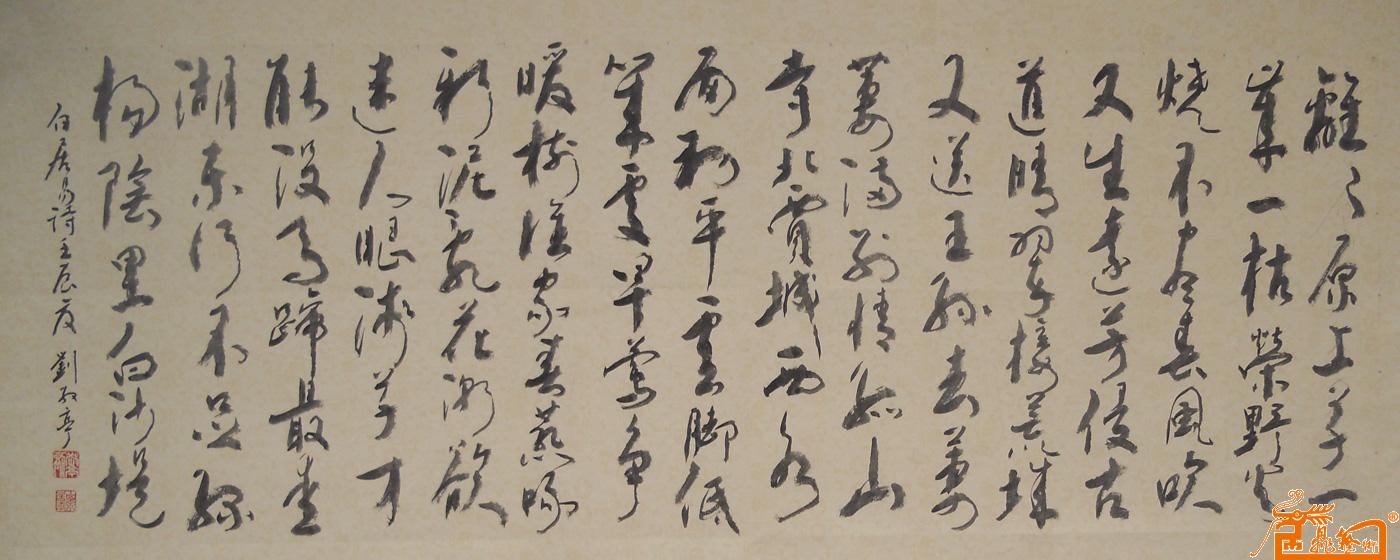 離々原上草一
歲一枯榮野火
燒不盡春風吹
又生遠芳侵古
道晴翠接荒城
又送王孫去萋
萋滿別情孤山
寺北賈城西水
面初平雲脚低
幾處早鶯爭
暖樹誰家春燕啄
新泥亂花漸欲
迷人眼淺草才
能沒馬蹄最愛
湖東行不足綠
楊陰里白沙堤
白居易詩壬辰夏 劉亭